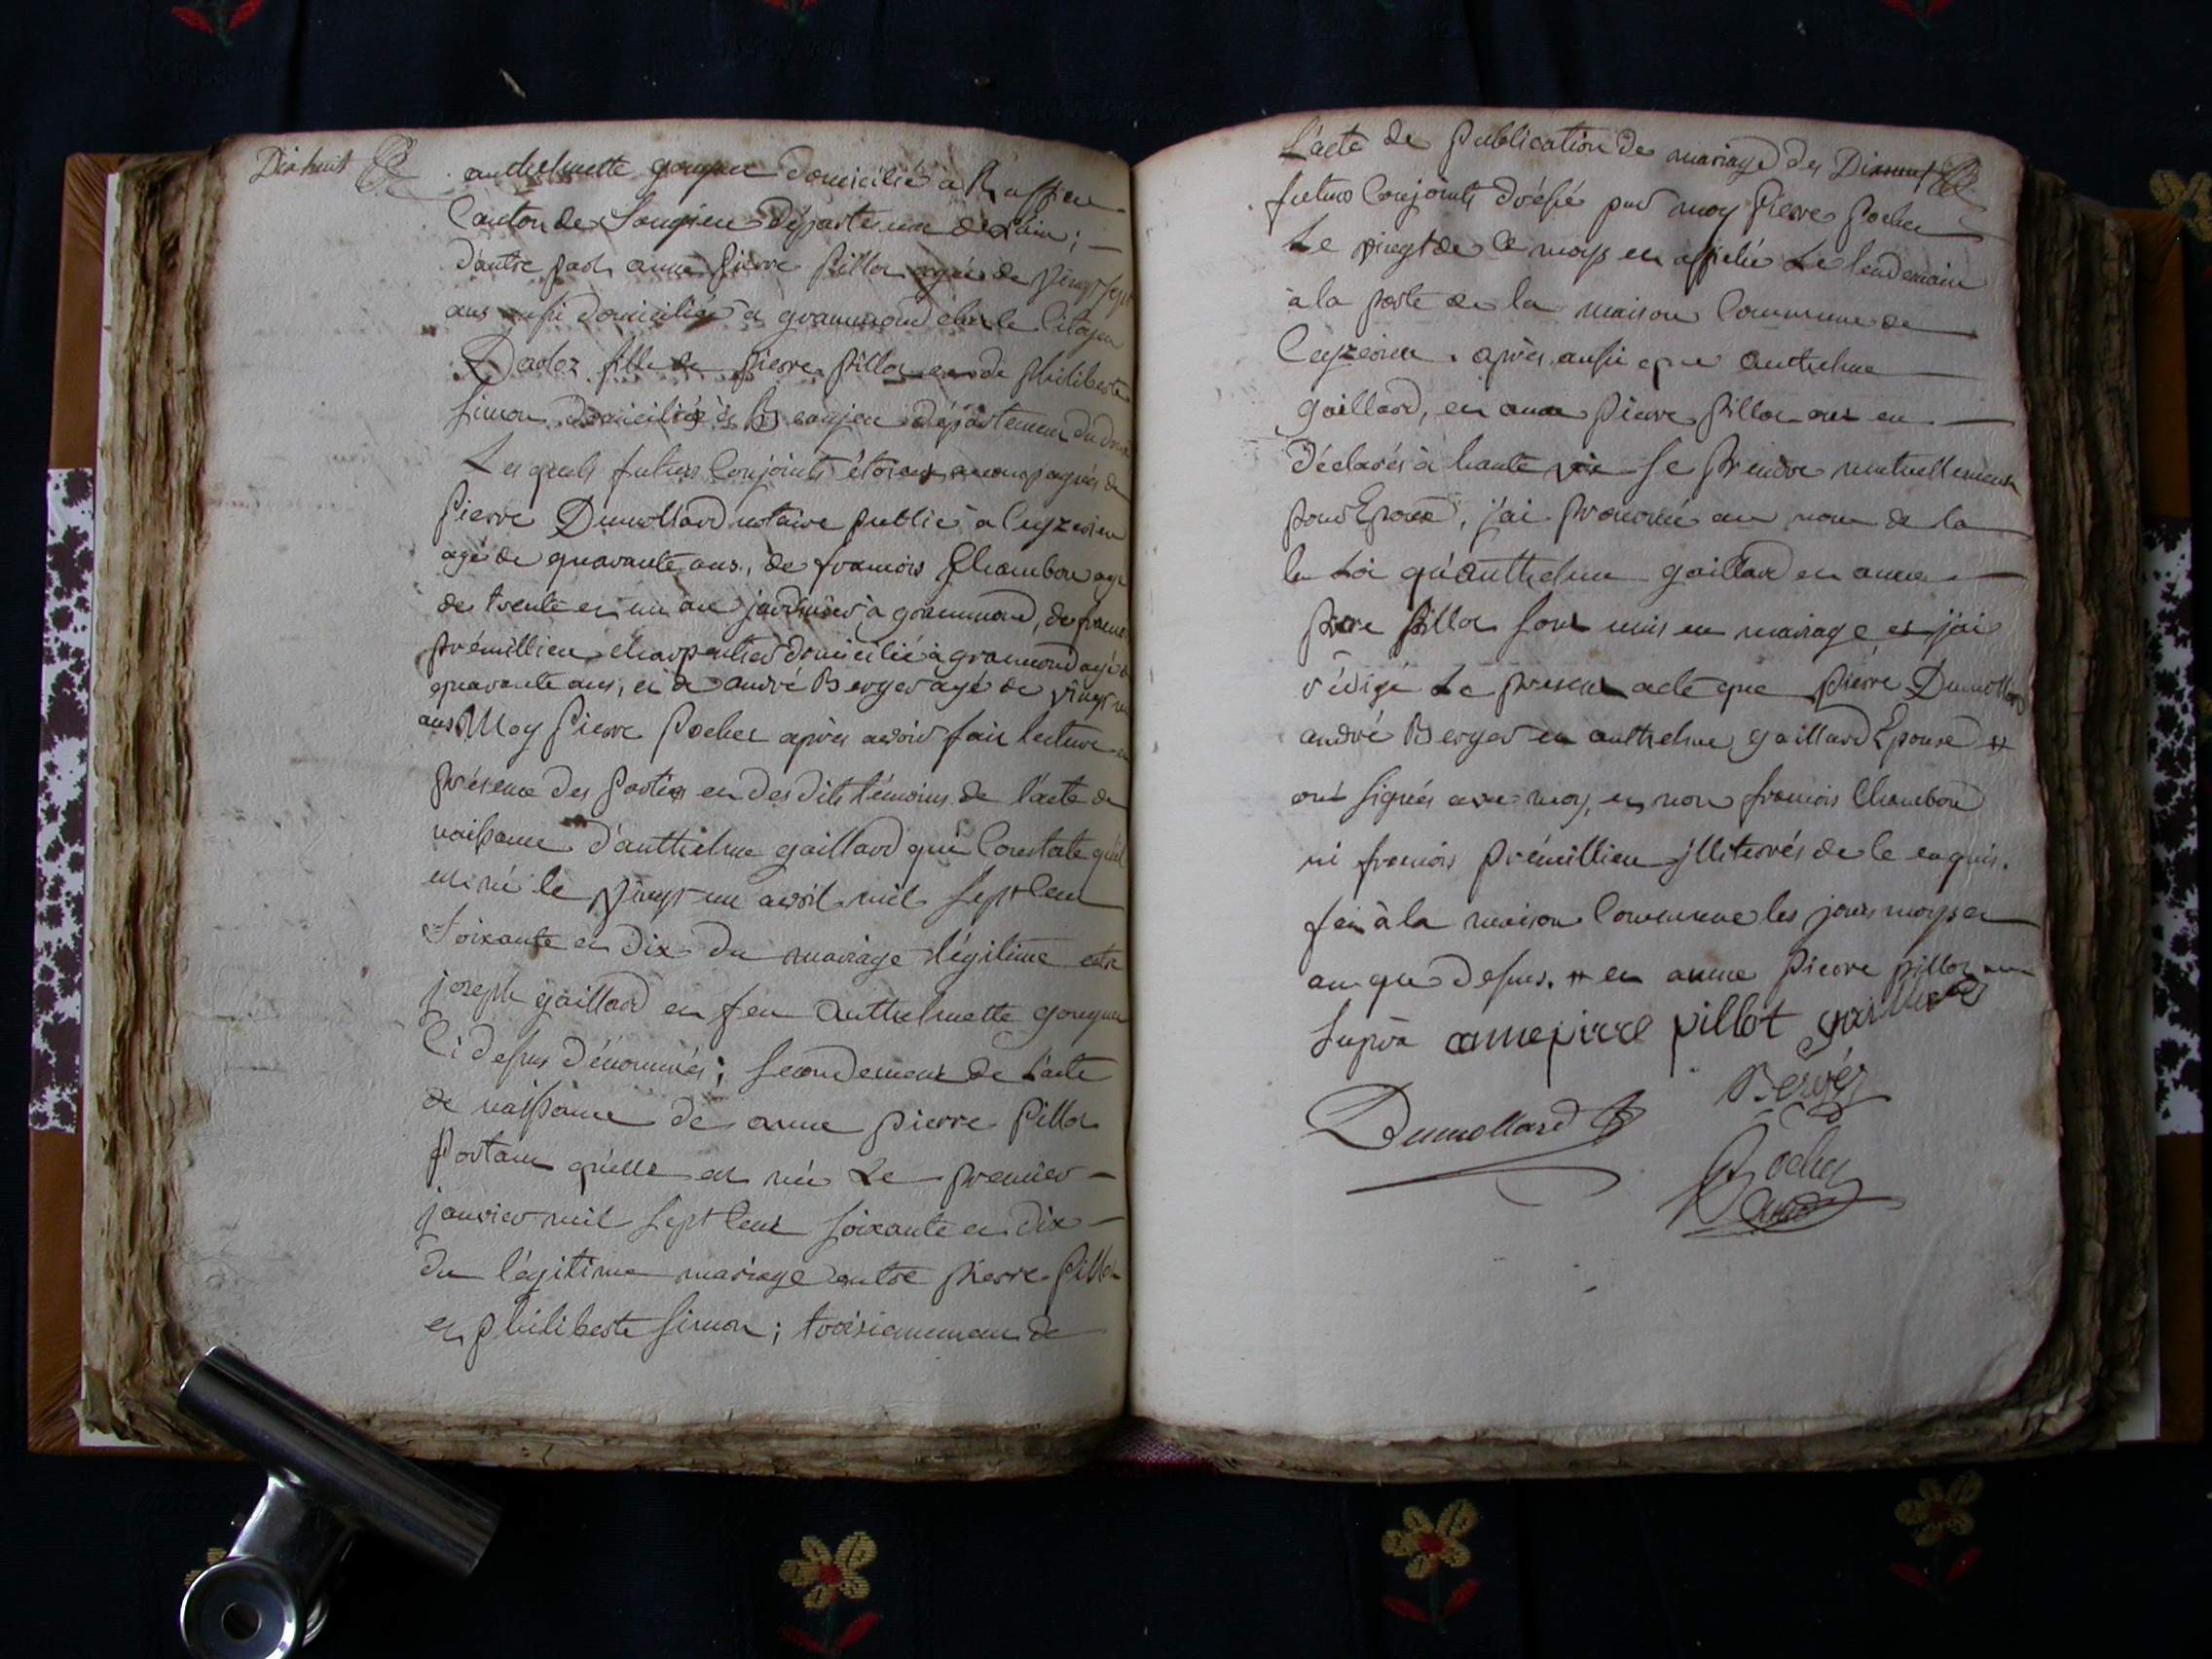 Dix huit
anthelmette goujon domicilié à Ruffieu
Canton de Songieu Département de L'ain;
d'autre part anne pierre pillot agée de vingt sept
ans aussi domiciliée à grammond chez le Citoyen
fille de pierre pillot et de philiberte
simon domiciliés à Beaujeu département du
Les quels futurs Conjoints étoient accompagnés de
pierre Dumollard notaire public à Ceyzerieu
agé de quarante ans, de francois Chambon agé
de trente et un ans jardinier à grammond, de francois
prémillieu charpentier domicilié à grammond agé de
quarante ans, et de andré Berger agé de vingt un
ans Moy Pierre Pochet après avoir fait lecture en
présence des parties et des dits témoins de l'acte de
naissance d'anthelme gaillard qui Constate qu'il
est né le vingt un avril mil sept Cent
Soixante et dix du mariage légitime entre
joseph gaillard et feu anthelmette goujon
Ci dessus dénommés; secondement de L'acte
de naissance de anne pierre pillot
portant qu'elle est née Le premier
janvier mil sept Cent soixante et dix
du légitime mariage entre pierre pillot
et philiberte simon; troisiemement de
L'acte de Publication de mariage des
futurs Conjoints dréssé par moy Pierre Pochet
Le vingt de Ce moys et affiché Le lendemain
à la porte de la maison Commune de
Ceyzerieu. après aussi que anthelme
gaillard, et anne pierre pillot ont eu
déclarés à haute voix se prendre mutuellement
pour Epoux, j'ai prononcé au nom de la
la Loi qu'anthelme gaillard et anne
pierre pillot sont unis en mariage et j'ai
rédigé Le présent acte que pierre Dumollard
andré Berger et anthelme gaillard Epoux #
ont signés avec moy, et non francois Chambon
ni francois prémillieu illiterés de le enquis.
fait à la maison Commune les jours moys et
an que dessus. # et anne pierre pillot
Suprà anne pierre pillot gaillard
Berger
Dumollard
Pochet